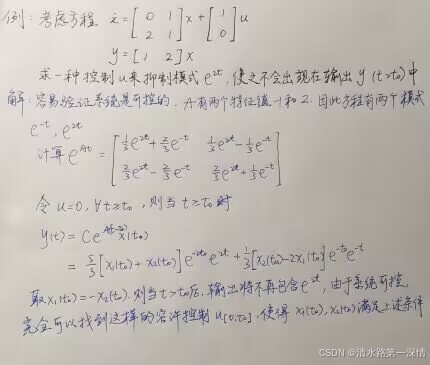 例: 考虑方程 ẋ = [0 1; 2 1] x + [1; 0] u
y = [1 2] x
求一种控制u来抑制模式 e^{2t}, 使之不会出现在输出 y (t>t₀) 中
解: 容易验证系统是可控的. A有两个特征值 -1 和 2. 因此方程有两个模式
e^{-t}, e^{2t}
计算 e^{At} = [⅓e^{2t}+⅔e^{-t} ⅓e^{2t}-⅓e^{-t}; ⅔e^{2t}-⅔e^{-t} ⅔e^{2t}+⅓e^{-t}]
令 u=0, ∀t≥t₀, 则当 t≥t₀ 时
y(t) = Ce^{A(t-t₀)}x(t₀)
= 5/3 [x₁(t₀)+x₂(t₀)] e^{-2t₀} e^{2t} + 1/3 [x₂(t₀)-2x₁(t₀)] e^{t₀} e^{-t}
取 x₁(t₀)=-x₂(t₀). 则当 t>t₀后, 输出将不再包含 e^{2t}. 由于系统可控,
完全可以找到这样的容许控制 u[0,t₀], 使得 x₁(t₀), x₂(t₀) 满足上述条件
CSDN @清水路第一深情